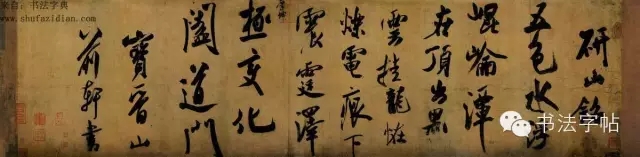 来自：书法字典
www.shufazidian.com
研山銘
五色水浮
崐崘潭
在頂出黑
雲挂龍恠
爍電痕下
震霆澤
極變化
闔道門
寶晉山
前軒書
书法字帖